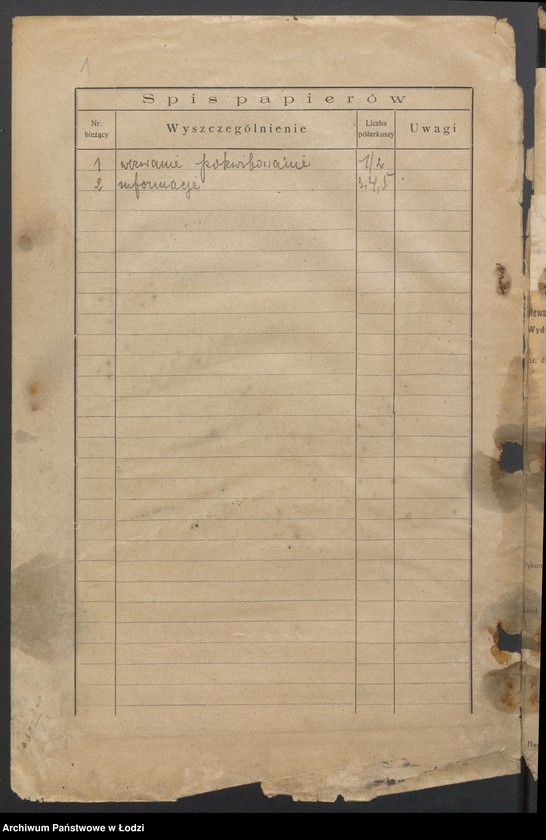 1
Spis papierów
Nr. bieżący
Wyszczególnienie
Liczba półarkuszy
Uwagi
1 wezwanie pokwitowanie 1/2
2 informacje 3,4,5
Wyd
Archiwum Państwowe w Łodzi